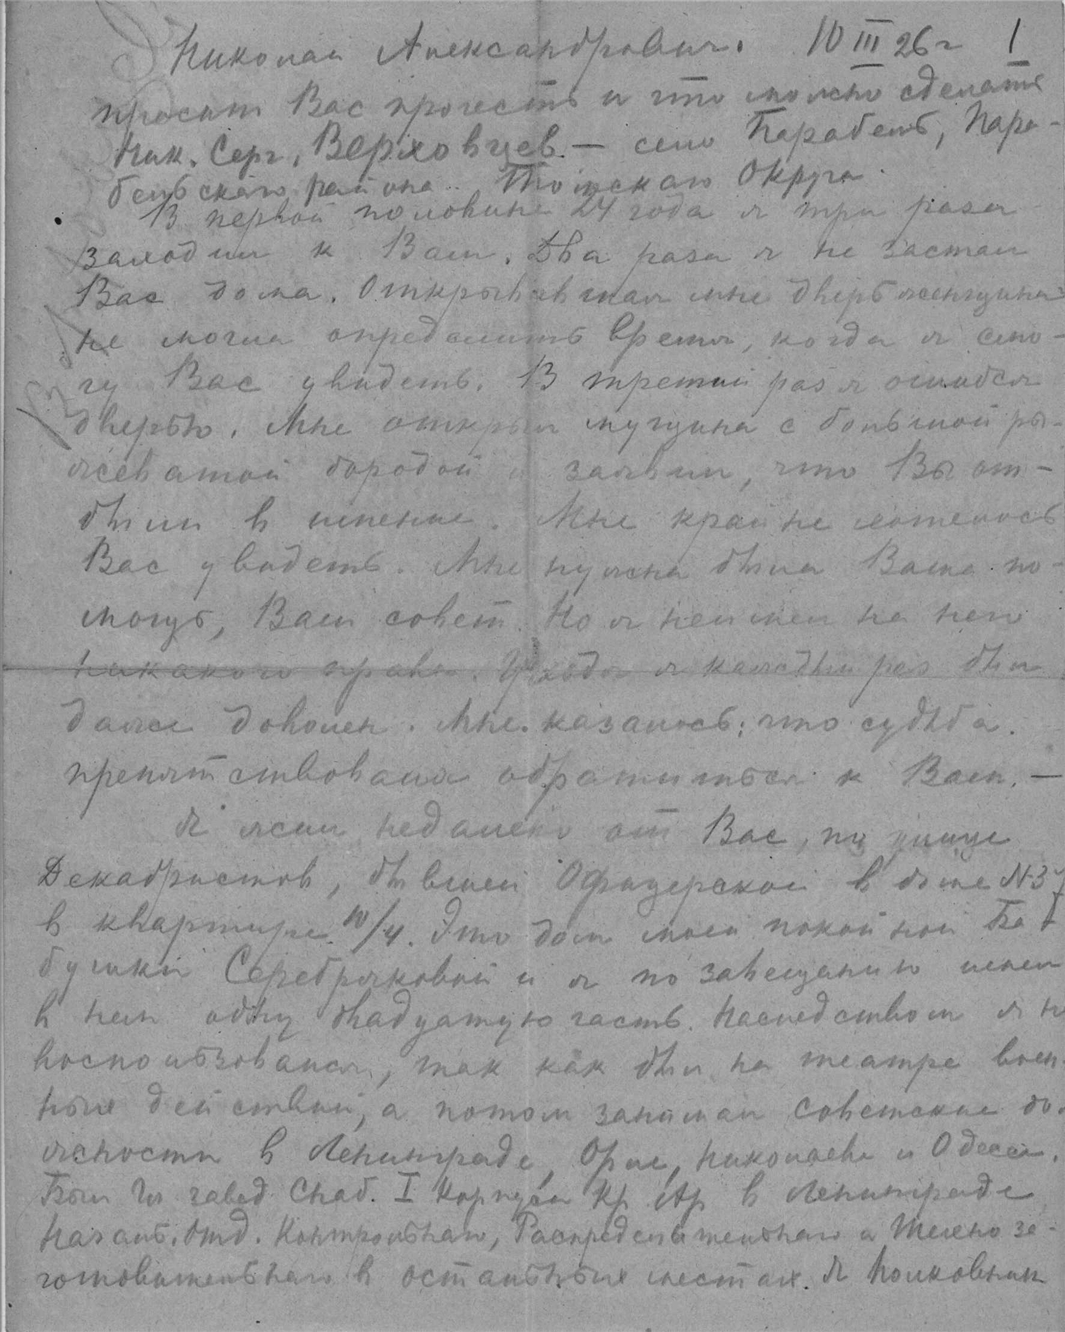 Николай Александрович. 10 III 26 г 1
просит Вас прочесть и что можно сделать
Ник. Серг. Верховцев. — село Парабель, Пара-
бельскаго района. Томскаго Округа.
В первой половине 24 года я три раза
заходил к Вам. Два раза я не застал
Вас дома. Открывавшая мне дверь женщина
не могла определить время, когда я смо-
гу Вас увидеть. В третий раз я ошибся
дверью. Мне открыл мущина с большой ры-
жеватой бородой и заявил, что Вы от-
были в имение. Мне крайне хотелось
Вас увидеть. Мне нужна была Ваша по-
мощь, Ваш совет. Но я не имел на него
никакого права. Уходя я каждый раз был
даже доволен. Мне казалось: что судьба
препятствовала обратиться к Вам. —
Я жил недалеко от Вас, по улице
Декабристов, бывшей Офицерской в доме N 37
в квартире 10/4. Это дом моей покойной Ба-
бушки Серебряковой и я по завещанию имел
в нем одну двадцатую часть. Наследством я н
воспользовался, так как был на театре воен-
ных действий, а потом занимал советские до-
лжности в Ленинграде, Орле, Николаеве и Одессе.
Был завед. Снаб. I Корпуса Кр Ар в Ленинграде
Начальн. Отд. Контрольнаго, Распределительнаго и
готовительнаго в остальных местах. Я полковник